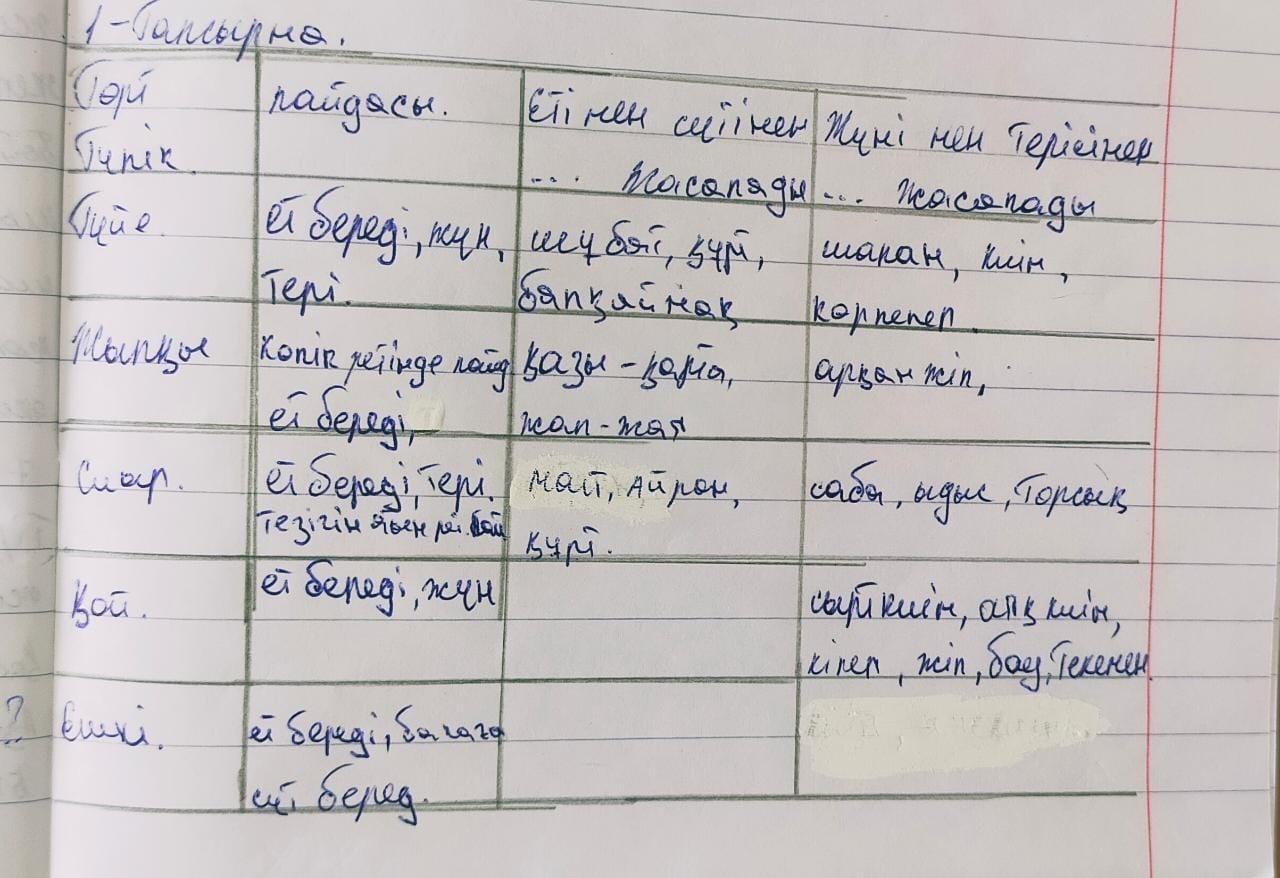 1-Тапсырма.
Төрт
түлік.
пайдасы.
Еті нен сүтінен
... жасалады
Жүні нен терісінен
... жасалады
Түйе
ет береді, жүн,
тері.
шұбат, құрт,
балқаймақ
шапан, киім,
көрпелер.
Жылқы
көлік ретінде пайд
ет береді,
қазы-қарта,
жал-жая
арқан жіп,
Сиыр.
ет береді, тері.
май, Айран,
құрт.
саба, ыдыс, торсық
Қой.
ет береді, жүн
сырткиім, аяқ киім,
кілем, жіп, бау,
?
Ешкі.
ет береді,
сүт беред.